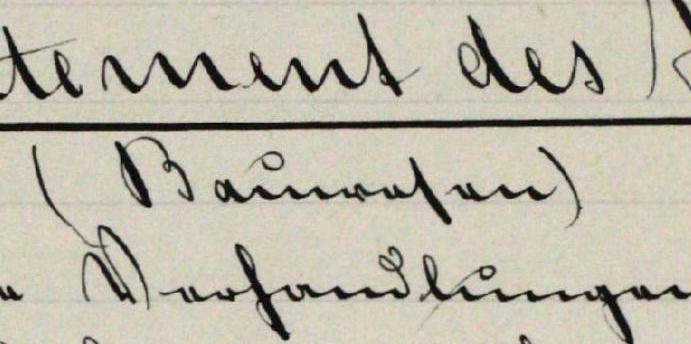 tement des
(Bauwesen)
Verhandlungen